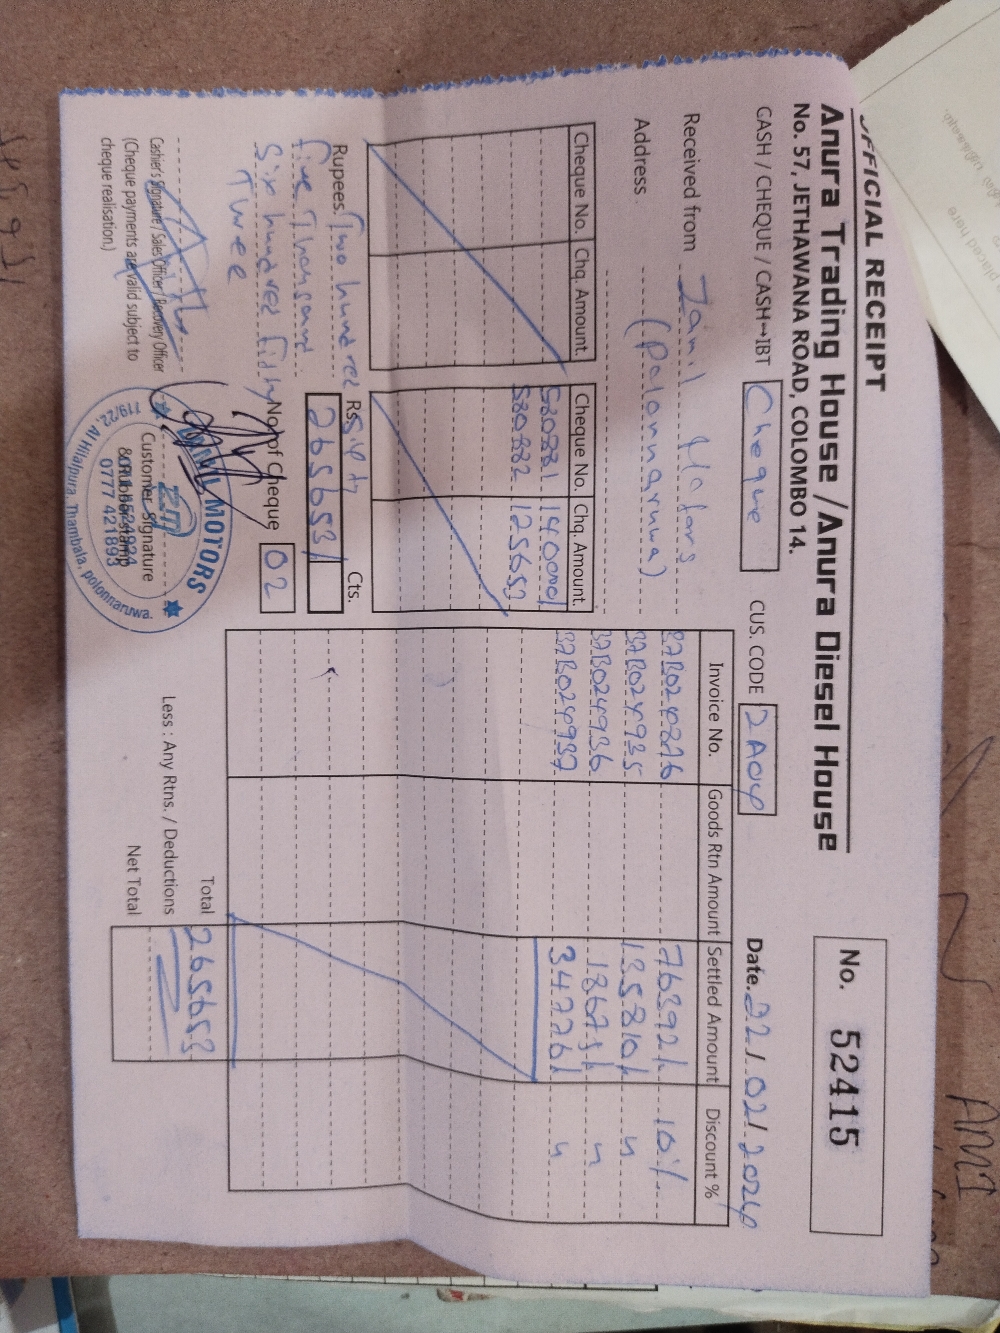 OFFICIAL RECEIPT
Anura Trading House / Anura Diesel House
No. 57, JETHAWANA ROAD, COLOMBO 14.
No. 52415
CASH / CHEQUE / CASH→IBT Cheque CUS. CODE 2A04 Date. 22/02/2024
Received from Jamil Motors
(Polonnaruwa)
Address
Cheque No. Chq. Amount. Cheque No. Chq. Amount.
580881 140000/
580882 125653
Invoice No. Goods Rtn Amount Settled Amount Discount %
37B024826 76392/ 10%
37B024935 135810/ "
37B024936 18675/ "
37B024937 34776/ "
Rupees Two hundred Sixty
five Thousand
Six hundred fifty
Three
Rs. Cts.
265653/
No. of Cheque 02
Total 265653
Less : Any Rtns. / Deductions
Net Total
Cashier's Signature / Sales Officer / Recovery Officer
(Cheque payments are valid subject to
cheque realisation.)
Customer Signature
& Rubber stamp
MOTORS
0777 421893
119/22, Al Hilalpura, Thambala, polonnaruwa.
AMI